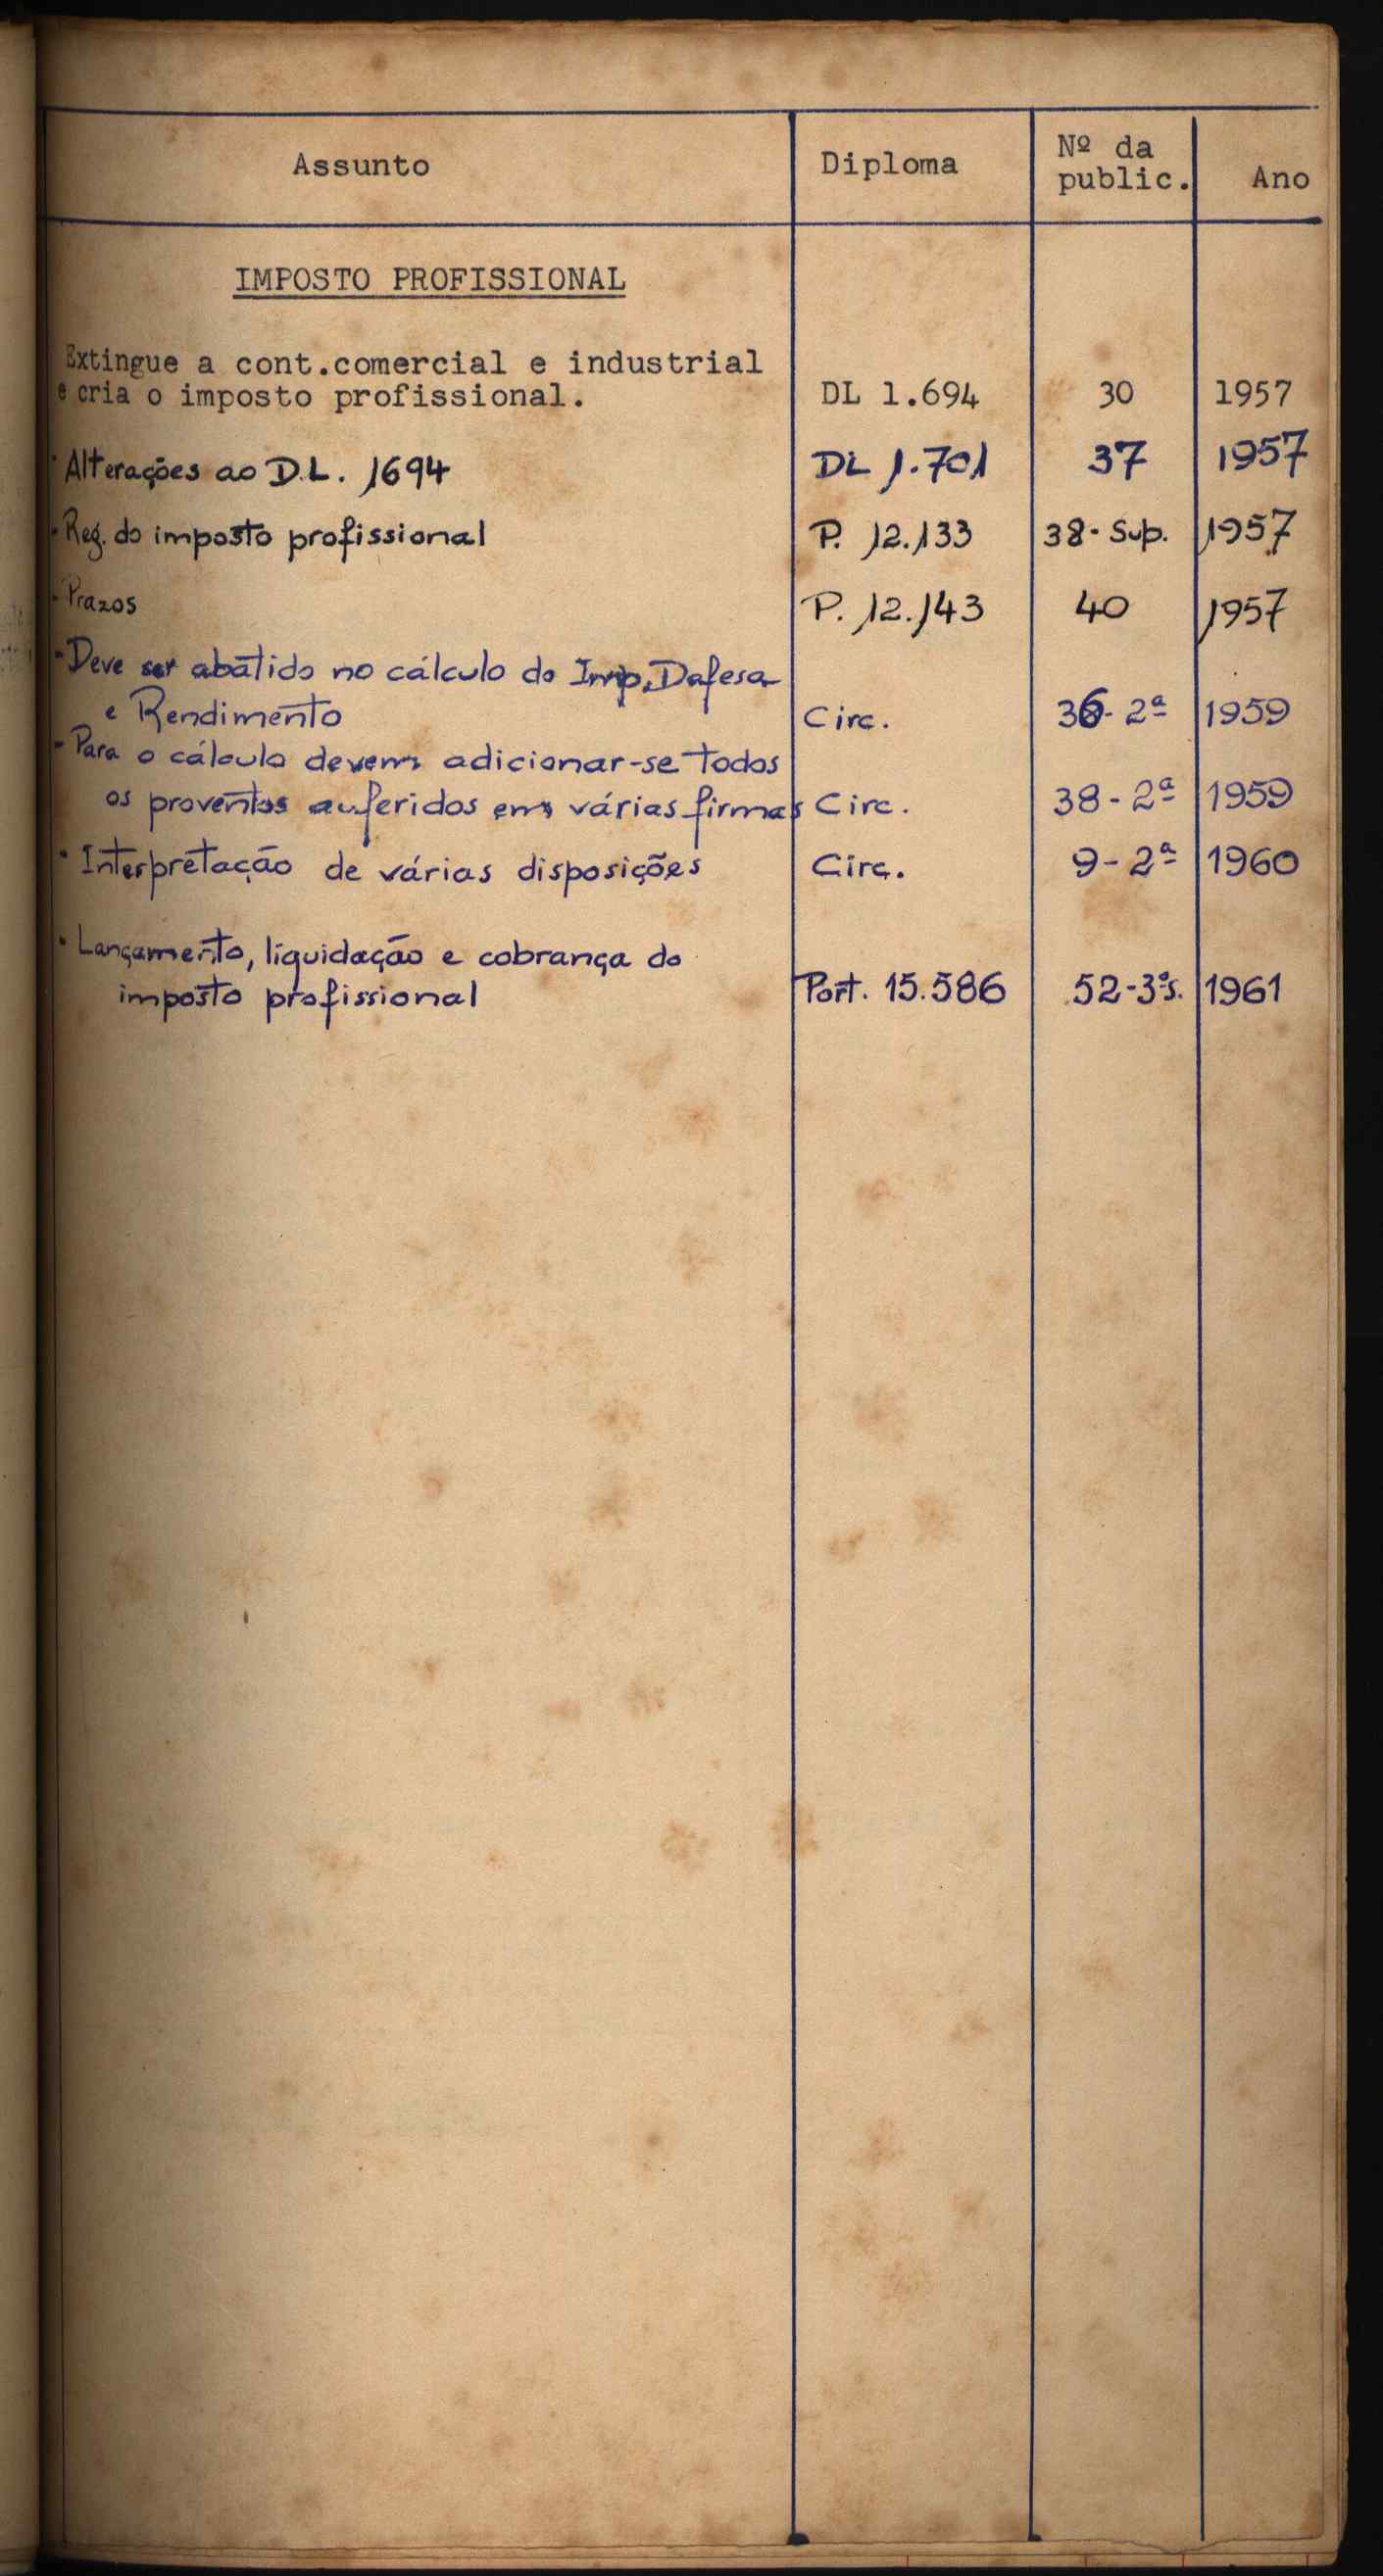 Assunto Diploma Nº da public. Ano
IMPOSTO PROFISSIONAL
Extingue a cont.comercial e industrial
e cria o imposto profissional. DL 1.694 30 1957
· Alterações ao D.L. 1694 DL 1.701 37 1957
· Reg. do imposto profissional P. 12.133 38- Sup. 1957
· Prazos P. 12.143 40 1957
· Deve ser abatido no cálculo do Imp. Defesa
e Rendimento Circ. 36- 2ª 1959
· Para o cálculo devem adicionar-se todos
os proventos auferidos em várias firmas Circ. 38- 2ª 1959
· Interpretação de várias disposições Circ. 9- 2ª 1960
· Lançamento, liquidação e cobrança do
imposto profissional Port. 15.586 52-3ºs. 1961